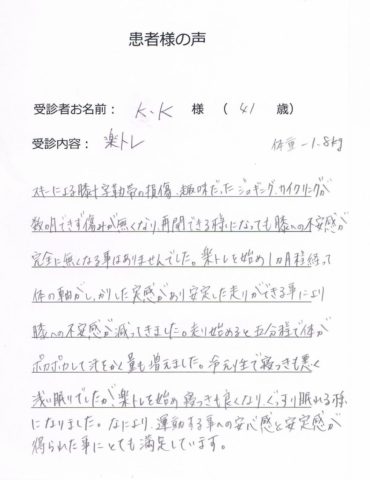 患者様の声
受診者お名前： K.K 様 （ 41 歳）
受診内容： 楽トレ 体重 -1.8kg
スキーによる膝十字靭帯の損傷、趣味だったジョギング、サイクリングが
数ヵ月できず傷みが無くなり、再開できる様になっても膝への不安感が
完全に無くなる事はありませんでした。楽トレを始め1カ月程経って
体の軸がしっかりした実感があり安定した走りができる事により
膝への不安感が減ってきました。走り始めると五分程で体が
ポカポカして汗をかく量も増えました。冷え性で寝つきも悪く
浅い眠りでしたが楽トレを始め寝つきも良くなり、ぐっすり眠れる様
になりました。なにより、運動する事への安心感と安定感が
得られた事にとても満足しています。